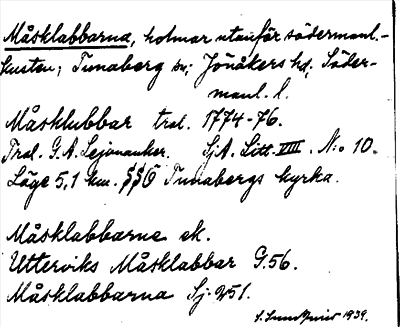 Måsklabbarna, holmar utanför södermanl.-
kusten; Tunaberg sn; Jönåkers hd, Söder-
manl. l.
Måsklubbar trol. 1774-76.
Trol. G. A. Lejonanker. SjA. Litt. VIII. N:o 10.
Läge 5,1 km. SSÖ Tunabergs kyrka.
Måsklabbarna ek.
Utterviks Måsklabbar G.56.
Måsklabbarna Sj. 251.
1939.